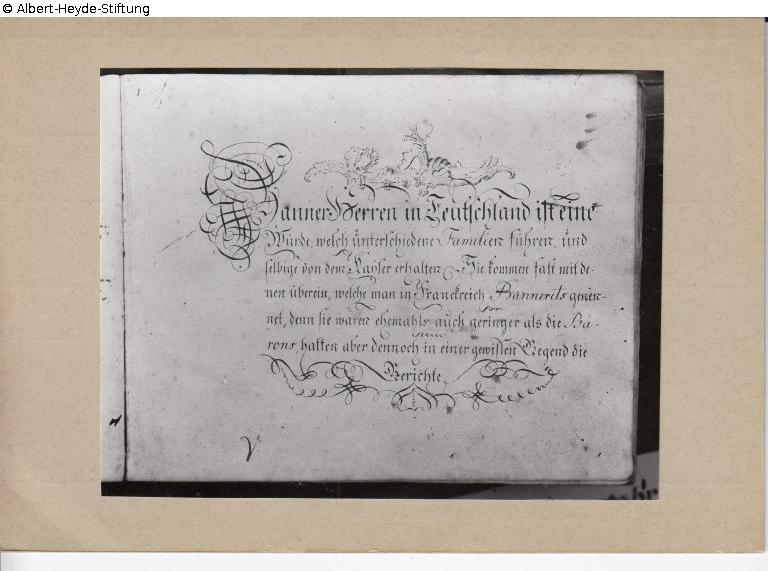 © Albert-Heyde-Stiftung
Banner Herren in Teutschland ist eine
Würde, welch unterschiedene Familien führen, und
selbige von dem Kayser erhalten. Sie kommen fast mit de-
nen überein, welche man in Franckreich Bannerets genen-
net, denn sie waren ehemahls auch geringer als die Ba-
rons, hatten aber dennoch in einer gewissen Gegend die
Gerichte.
V